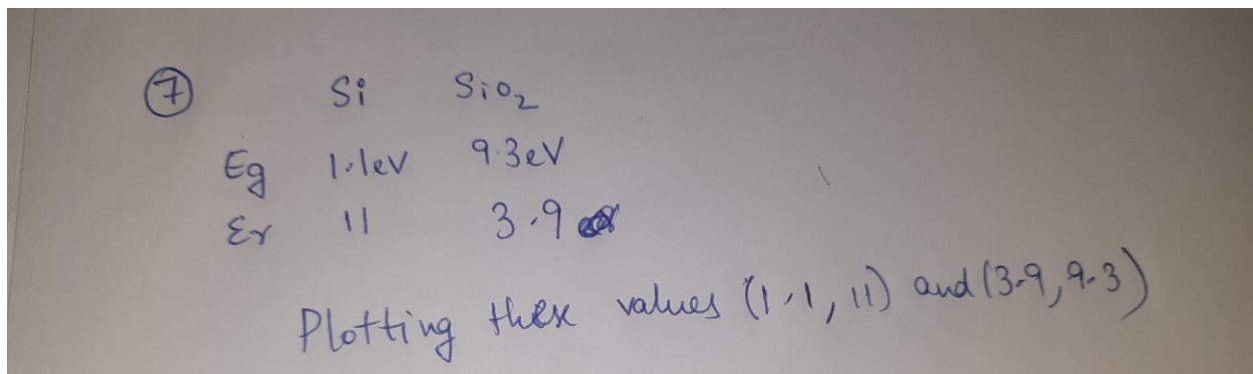 ⑦ Si SiO₂
Eg 1.1eV 9.3eV
Er 11 3.9
Plotting these values (1.1, 11) and (3.9, 9.3)